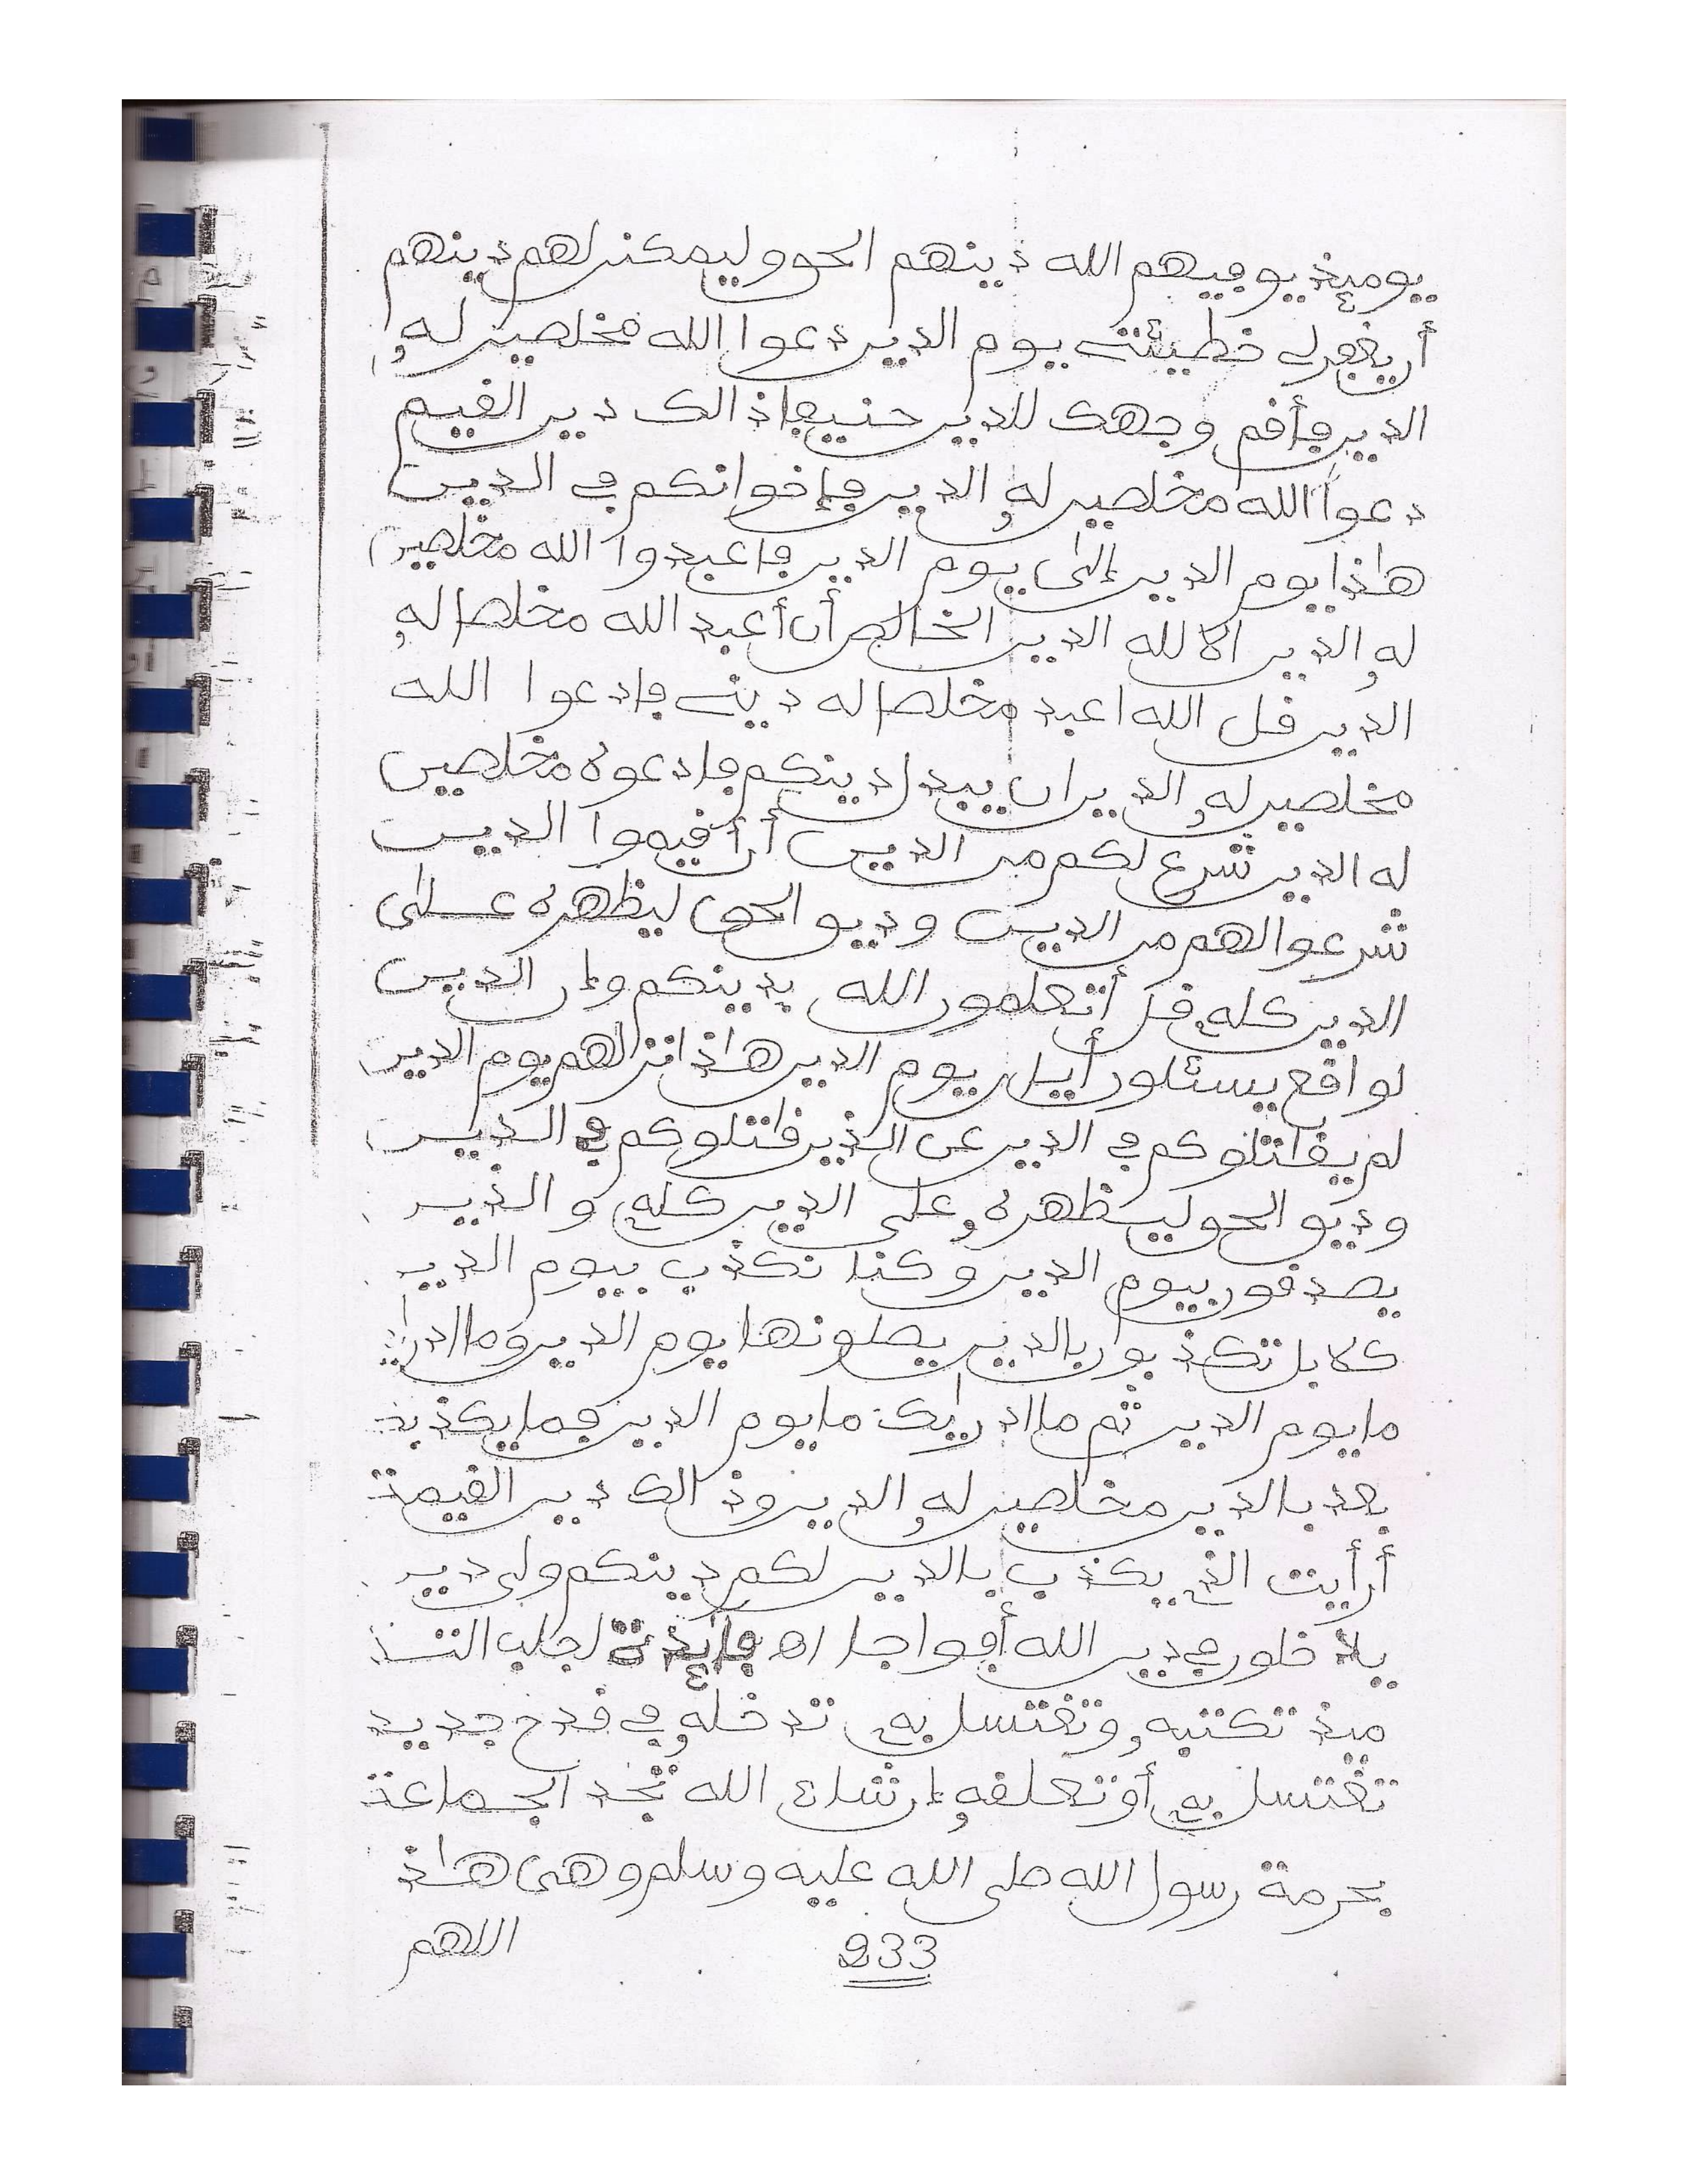 يومئذ يوفيهم الله دينهم الحق وليمكنن لهم دينهم
أن يغفر لي خطيئتي يوم الدين دعوا الله مخلصين له
الدين فأقم وجهك للدين حنيفا ذالك دين القيم
دعوا الله مخلصين له الدين فإخوانكم في الدين
هاذا يوم الدين إلى يوم الدين فاعبدوا الله مخلصين
له الدين الا لله الدين الخالص أن أعبد الله مخلصا له
الدين قل الله اعبد مخلصا له ديني فادعوا الله
مخلصين له الدين ان يبدل دينكم فادعوه مخلصين
له الدين شرع لكم من الدين أن أقيموا الدين
شرعوا لهم من الدين ودين الحق ليظهره على
الدين كله قل أتعلمون الله بدينكم وإن الدين
لواقع يسئلون أيان يوم الدين هاذا نزلهم يوم الدين
لم يقاتلوكم في الدين عن الذين قاتلوكم في الدين
ودين الحق ليظهره على الدين كله والذين
يصدقون بيوم الدين وكنا نكذب بيوم الدين
كلا بل تكذبون بالدين يصلونها يوم الدين وما ادراك
ما يوم الدين ثم ما ادريك ما يوم الدين فما يكذبك
بعد بالدين مخلصين له الدين وذالك دين القيمة
أرأيت الذي يكذب بالدين لكم دينكم ولي دين
يدخلون في دين الله أفواجا اه فائدة لجلب التـ
منذ تكتبه وتغتسل به تدخله في قدح جديد
تغتسل به أو تعلقه إن شاء الله تجد الجماعة
بحرمة رسول الله صلى الله عليه وسلم وهي هاذ
233
اللهم